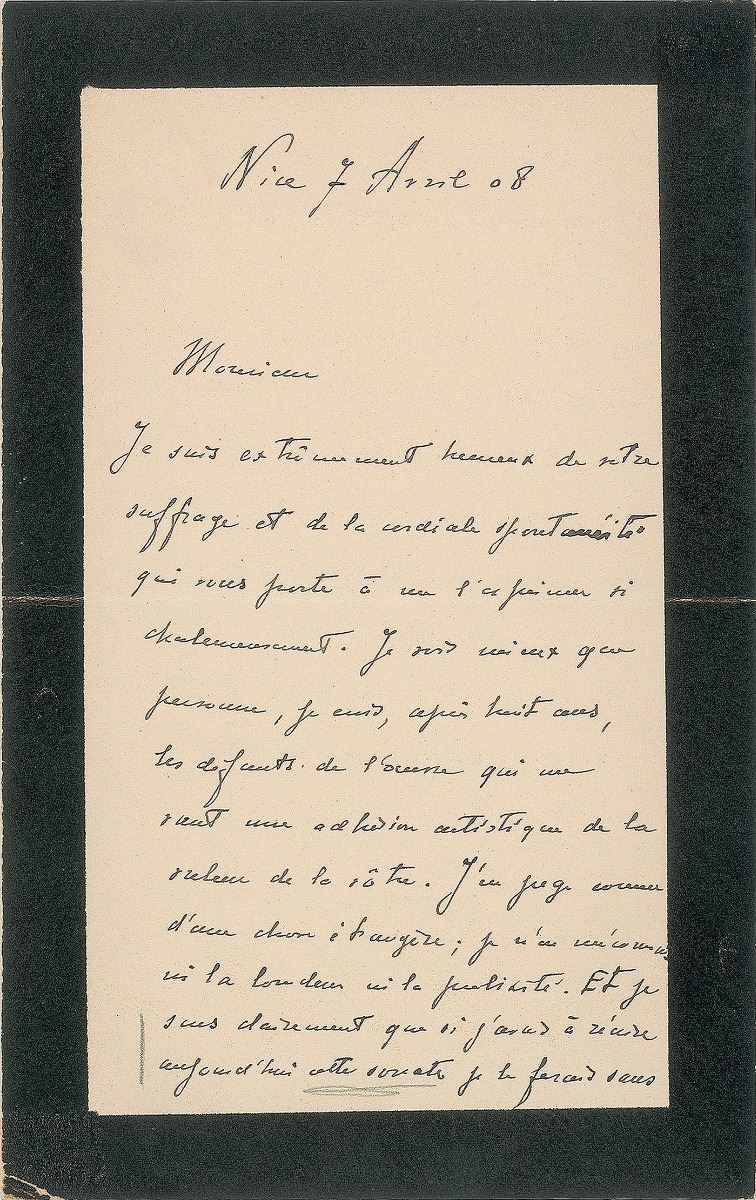 Nice 7 Avril 08
Monsieur
Je suis extrêmement heureux de votre
suffrage et de la cordiale spontanéité
qui vous porte à me l'exprimer si
chaleureusement. Je vois mieux que
personne, je crois, après huit ans,
les défauts de l'oeuvre qui me
vaut une adhésion artistique de la
valeur de la vôtre. J'en juge comme
d'une chose étrangère ; je n'en méconnais
ni la lourdeur ni la prolixité. Et je
sens clairement que si j'avais à récrire
aujourd'hui cette sonate je le ferais sans